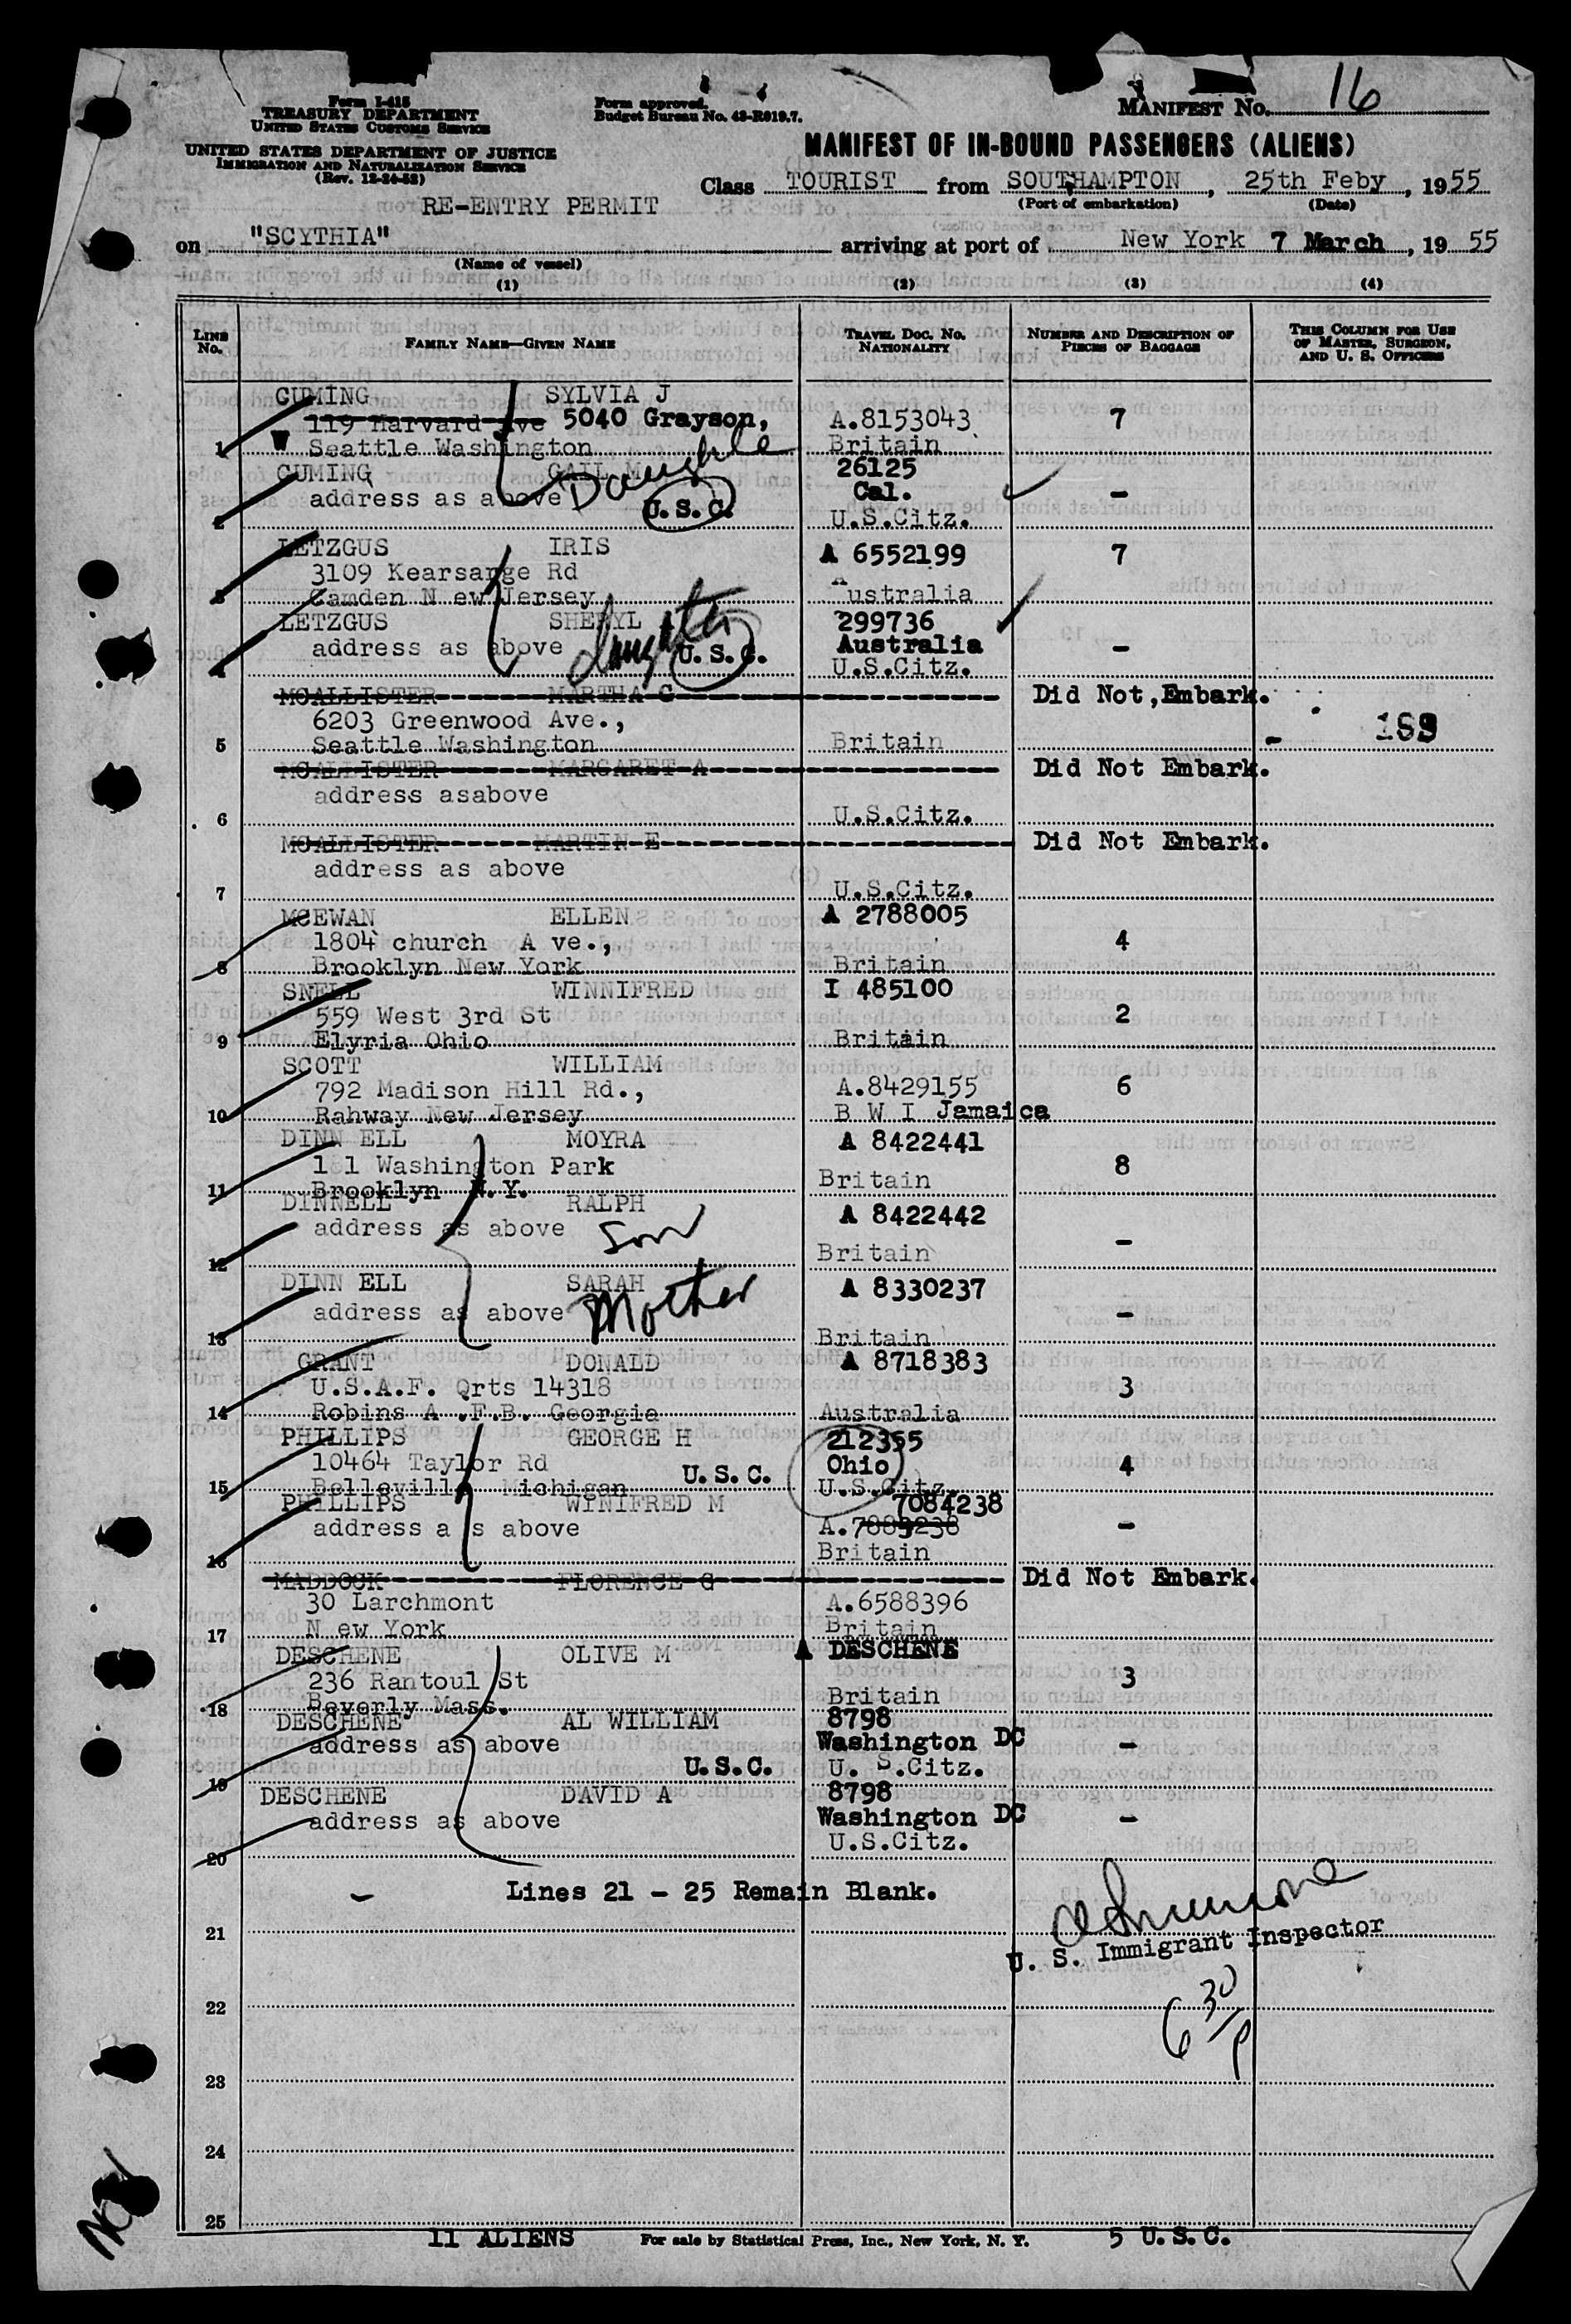 Form I-415
TREASURY DEPARTMENT
UNITED STATES CUSTOMS SERVICE
UNITED STATES DEPARTMENT OF JUSTICE
IMMIGRATION AND NATURALIZATION SERVICE
(Rev. 12-24-52)
Form approved.
Budget Bureau No. 43-R019.7.
MANIFEST NO. 16
MANIFEST OF IN-BOUND PASSENGERS (ALIENS)
Class TOURIST from SOUTHAMPTON, 25th Feby, 1955
(Port of embarkation) (Date)
RE-ENTRY PERMIT
on "SCYTHIA" arriving at port of New York 7 March, 19 55
(Name of vessel)
(1) (2) (3) (4)
LINE NO. FAMILY NAME—GIVEN NAME TRAVEL DOC. NO. NATIONALITY NUMBER AND DESCRIPTION OF PIECES OF BAGGAGE THIS COLUMN FOR USE OF MASTER, SURGEON, AND U. S. OFFICERS
CUMING SYLVIA J
119 Harvard Ave 5040 Grayson, A.8153043 7
1 W Seattle Washington Britain
CUMING GAIL M Daughter 26125
address as above Cal. -
2 U.S.C. U.S.Citz.
LETZGUS IRIS A 6552199 7
3109 Kearsange Rd
3 Camden N ew Jersey Australia
LETZGUS SHERYL 299736
address as above daughter Australia -
4 U.S.C. U.S.Citz.
MCALLISTER MARTHA C Did Not, Embark.
6203 Greenwood Ave.,
5 Seattle Washington Britain - 189
MCALLISTER MARGARET A Did Not Embark.
address asabove
6 U.S.Citz.
MCALLISTER MARTIN E Did Not Embark.
address as above
7 U.S.Citz.
MCEWAN ELLEN A 2788005
1804 church A ve., 4
8 Brooklyn New York Britain
SNELL WINNIFRED I 485100
559 West 3rd St 2
9 Elyria Ohio Britain
SCOTT WILLIAM
792 Madison Hill Rd., A.8429155 6
10 Rahway New Jersey B W I Jamaica
DINN ELL MOYRA A 8422441
1 1 Washington Park 8
11 Brooklyn N.Y. Britain
DINNELL RALPH A 8422442
address as above Son
12 Britain -
DINN ELL SARAH A 8330237
address as above Mother -
13 Britain
GRANT DONALD A 8718383
U.S.A.F. Qrts 14318 3
14 Robins A .F.B. Georgia Australia
PHILLIPS GEORGE H 212355
10464 Taylor Rd Ohio 4
15 Belleville Michigan U.S.C. U.S.Citz.
PHILLIPS WINIFRED M 7084238
address a s above A.7083238 -
16 Britain
MADDOCK FLORENCE G Did Not Embark.
30 Larchmont A.6588396
17 N ew York Britain
DESCHENE OLIVE M A DESCHENE
236 Rantoul St 3
18 Beverly Mass. Britain
DESCHENE AL WILLIAM 8798
address as above Washington DC -
19 U.S.C. U. S.Citz.
DESCHENE DAVID A 8798
address as above Washington DC -
20 U.S.Citz.
- Lines 21 - 25 Remain Blank.
21
U. S. Immigrant Inspector
22 6 30/P
23
24
25
11 ALIENS For sale by Statistical Press, Inc., New York, N. Y. 5 U.S.C.